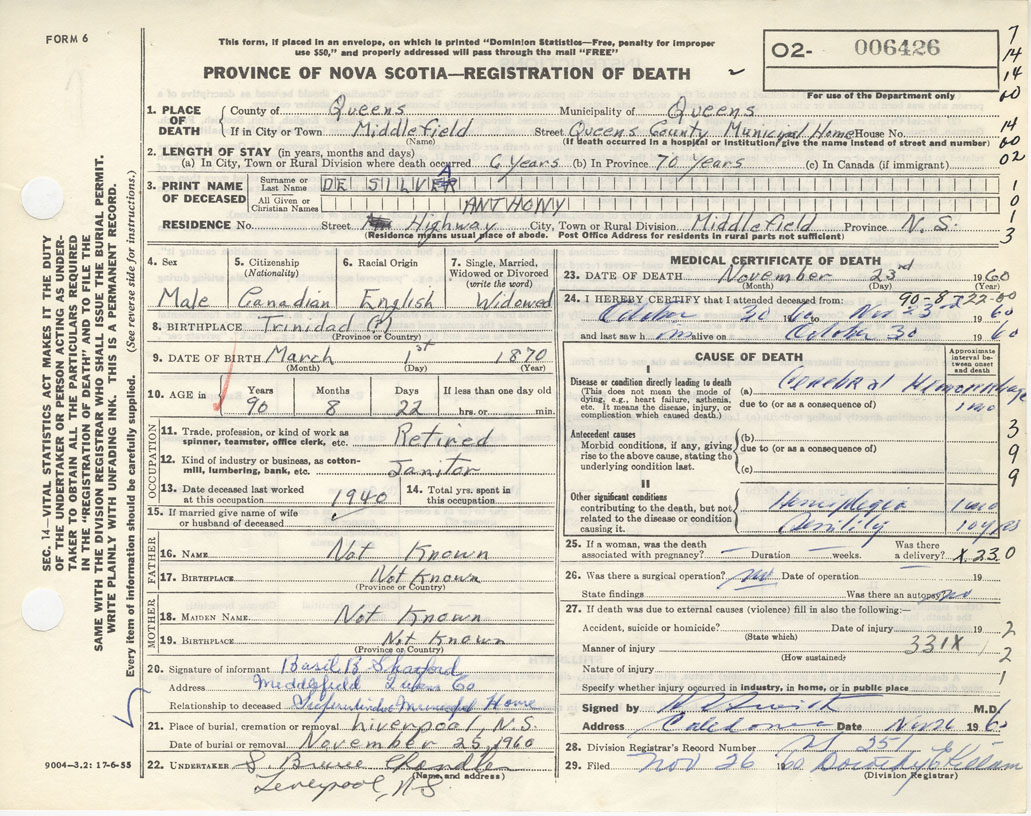 FORM 6
This form, if placed in an envelope, on which is printed "Dominion Statistics—Free, penalty for improper
use $50," and properly addressed will pass through the mail "FREE"
PROVINCE OF NOVA SCOTIA—REGISTRATION OF DEATH
O2- 006426
For use of the Department only
7
14
14
00
14
00
02
1
0
1
3
1. PLACE OF DEATH
County of Queens Municipality of Queens
If in City or Town Middlefield Street Queens County Municipal Home House No.
(Name) (If death occurred in a hospital or institution, give the name instead of street and number)
2. LENGTH OF STAY (in years, months and days)
(a) In City, Town or Rural Division where death occurred 6 Years (b) In Province 70 Years (c) In Canada (if immigrant)
3. PRINT NAME OF DECEASED
Surname or Last Name DE SILVA
All Given or Christian Names ANTHONY
RESIDENCE No. Street Highway City, Town or Rural Division Middlefield Province N.S.
(Residence means usual place of abode. Post Office Address for residents in rural parts not sufficient)
SEC. 14—VITAL STATISTICS ACT MAKES IT THE DUTY
OF THE UNDERTAKER OR PERSON ACTING AS UNDER-
TAKER TO OBTAIN ALL THE PARTICULARS REQUIRED
IN THE "REGISTRATION OF DEATH" AND TO FILE THE
SAME WITH THE DIVISION REGISTRAR WHO SHALL ISSUE THE BURIAL PERMIT.
WRITE PLAINLY WITH UNFADING INK. THIS IS A PERMANENT RECORD.
Every item of information should be carefully supplied. (See reverse side for instructions.)
4. Sex Male
5. Citizenship (Nationality) Canadian
6. Racial Origin English
7. Single, Married, Widowed or Divorced (write the word) Widowed
8. BIRTHPLACE Trinidad (?)
(Province or Country)
9. DATE OF BIRTH March 1st 1870
(Month) (Day) (Year)
10. AGE in Years 90 Months 8 Days 22 If less than one day old hrs. or min.
OCCUPATION
11. Trade, profession, or kind of work as spinner, teamster, office clerk, etc. Retired
12. Kind of industry or business, as cotton-mill, lumbering, bank, etc. Janitor
13. Date deceased last worked at this occupation 1940
14. Total yrs. spent in this occupation
15. If married give name of wife or husband of deceased
FATHER
16. NAME Not Known
17. BIRTHPLACE Not Known
(Province or Country)
MOTHER
18. MAIDEN NAME Not Known
19. BIRTHPLACE Not Known
(Province or Country)
20. Signature of informant Basil B
Address Middlefield Queens Co
Relationship to deceased Superintendent Municipal Home
21. Place of burial, cremation or removal Liverpool, N.S.
Date of burial or removal November 25, 1960
22. UNDERTAKER S. Bruce
(Name and address)
Liverpool, N.S.
9004—3.2: 17-6-55
MEDICAL CERTIFICATE OF DEATH
23. DATE OF DEATH November 23rd 1960
(Month) (Day) (Year)
90-8-22-00
24. I HEREBY CERTIFY that I attended deceased from:
October 30 60 to Nov 23rd 1960
and last saw h im alive on October 30 1960
CAUSE OF DEATH
Approximate interval between onset and death
I
Disease or condition directly leading to death
(This does not mean the mode of dying, e.g., heart failure, asthenia, etc. It means the disease, injury, or complication which caused death.)
(a) Cerebral Hemorrhage
due to (or as a consequence of) 1 mo
Antecedent causes
Morbid conditions, if any, giving rise to the above cause, stating the underlying condition last.
(b)
due to (or as a consequence of)
(c)
3
9
9
II
Other significant conditions contributing to the death, but not related to the disease or condition causing it.
Hemiplegia 1 mo
Senility 10 yrs
25. If a woman, was the death associated with pregnancy? Duration weeks. Was there a delivery?
X 230
26. Was there a surgical operation? no Date of operation 19
State findings Was there an autopsy no
27. If death was due to external causes (violence) fill in also the following:—
Accident, suicide or homicide? Date of injury 19
(State which)
Manner of injury 331X
(How sustained)
Nature of injury
Specify whether injury occurred in industry, in home, or in public place
2
2
1
Signed by M.D.
Address Caledonia Date Nov 26 1960
28. Division Registrar's Record Number
29. Filed Nov 26 60 Dorothy E Killam
(Division Registrar)